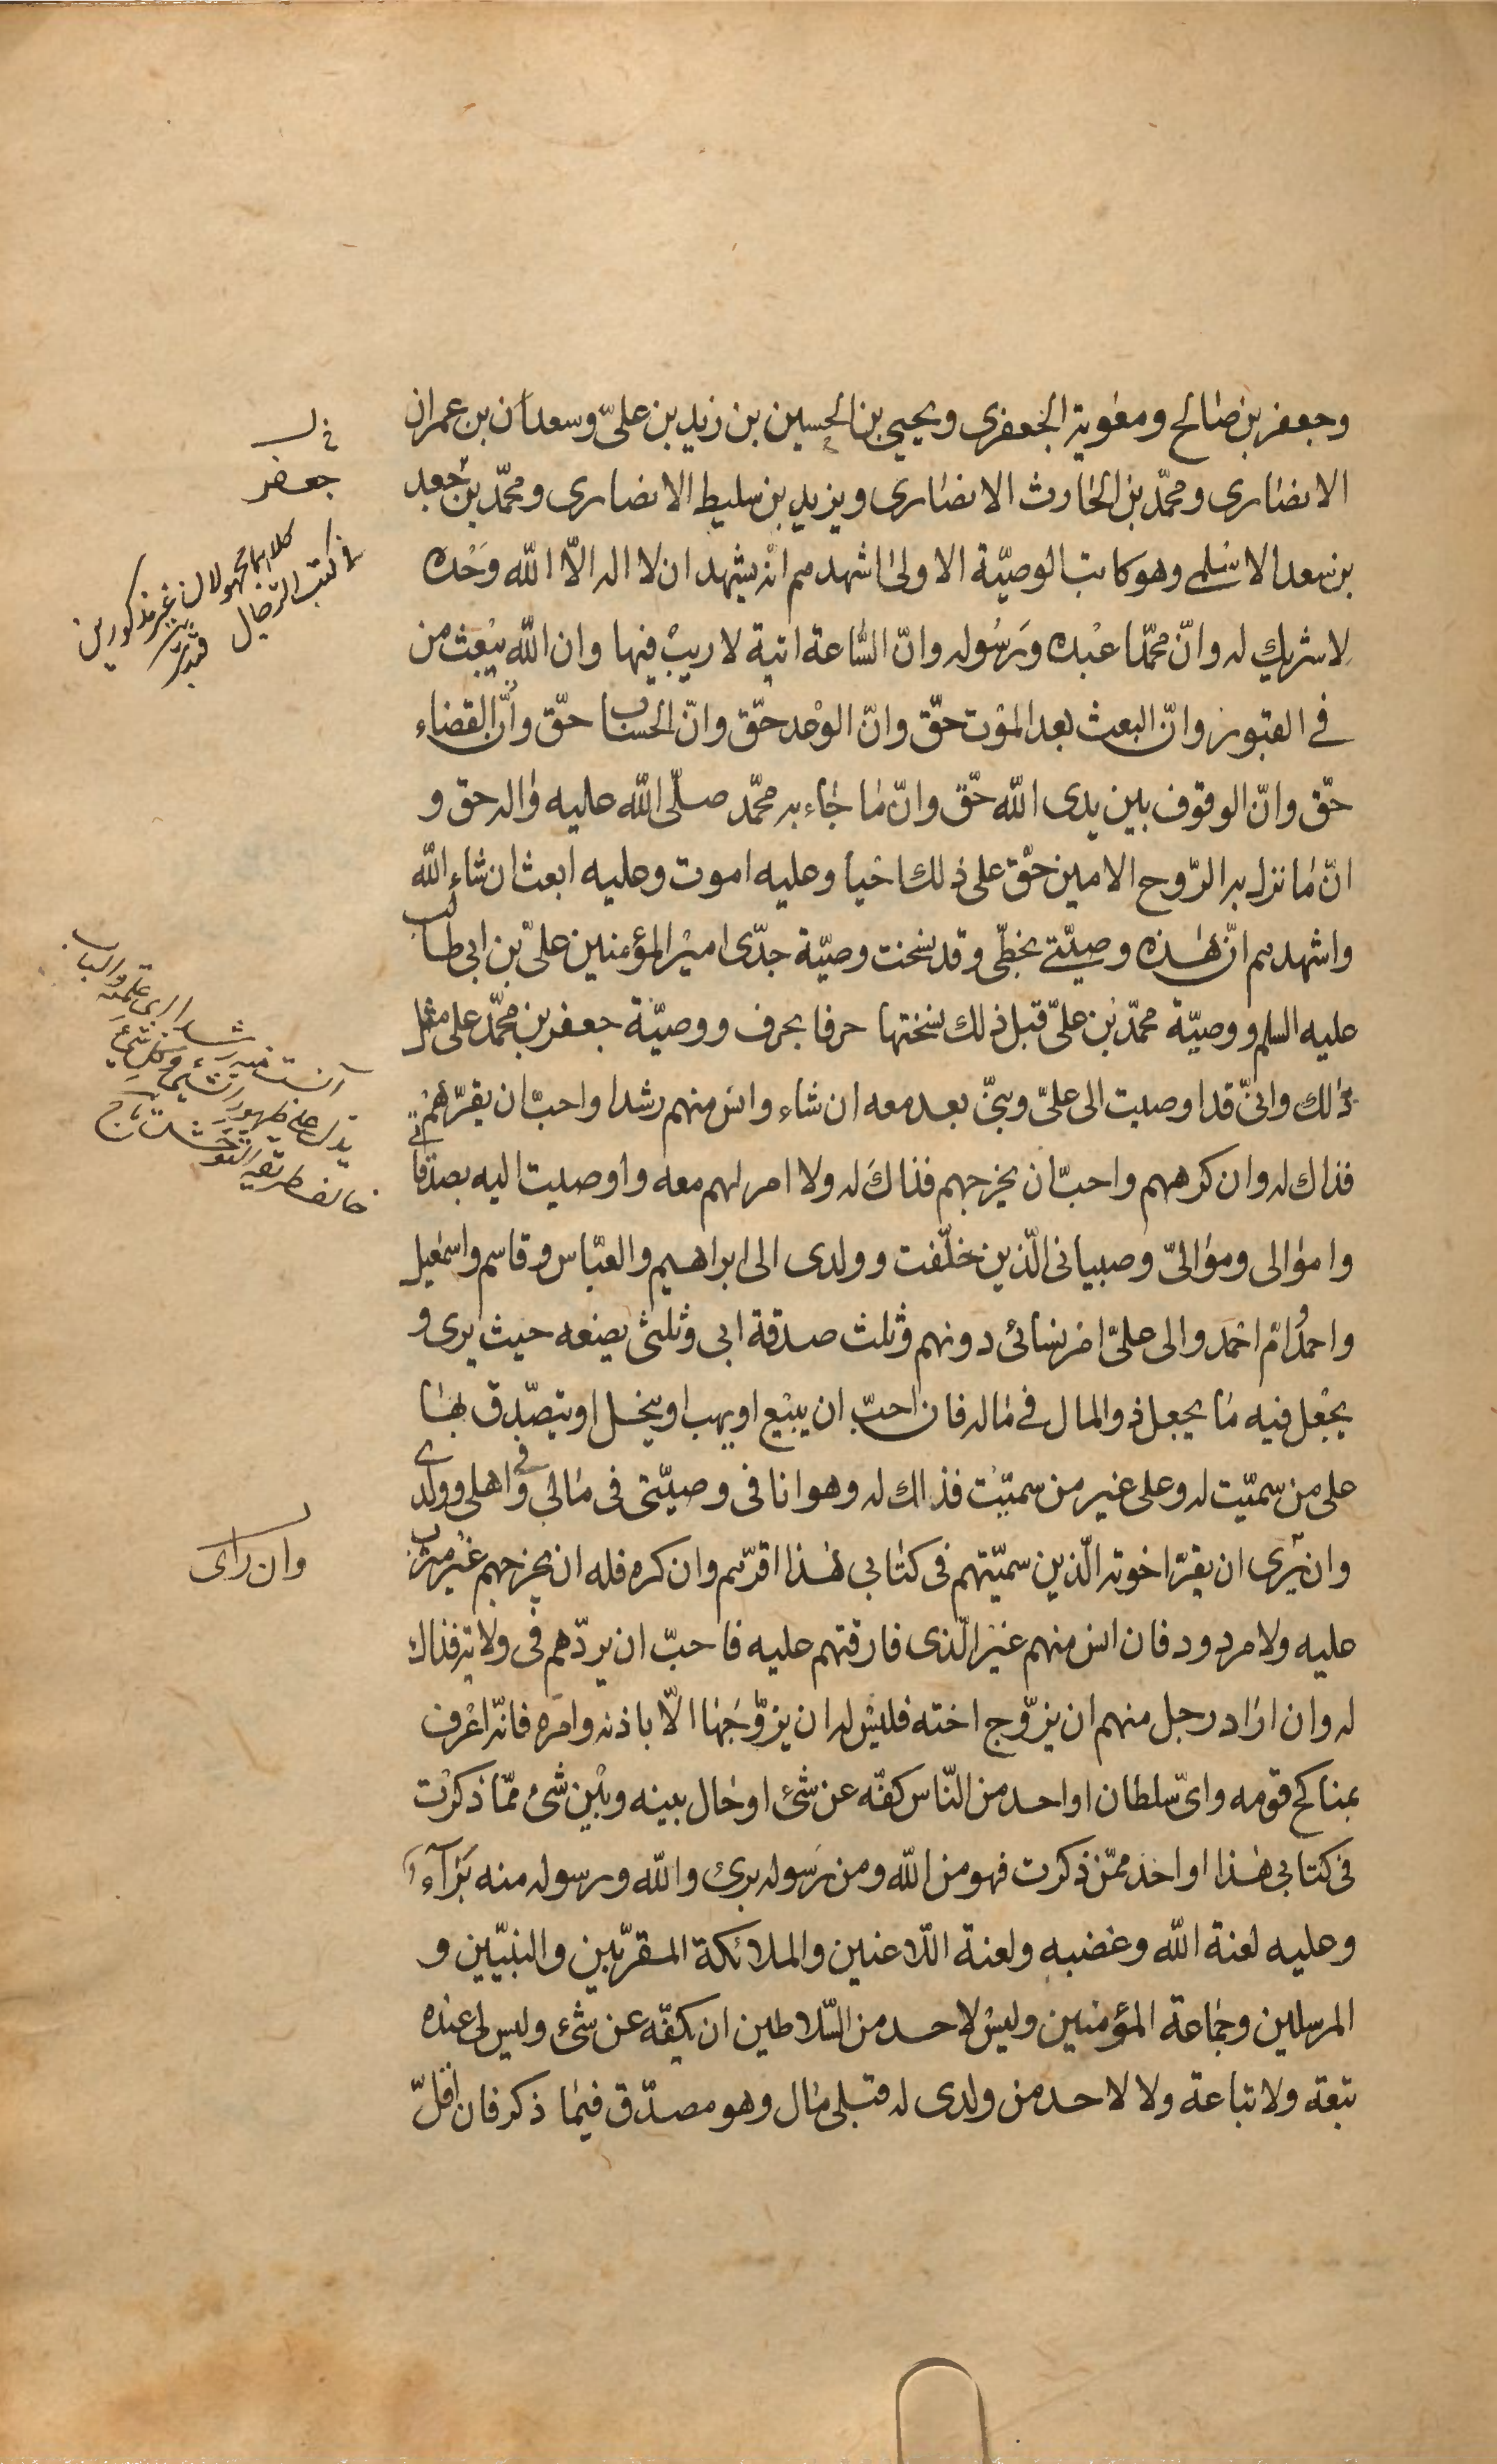 وجعفر بن صالح ومعوية الجعفرى ويحيى بن الحسين بن زيد بن علىّ وسعدان بن عمران
الانصارى ومحمّد بن الحارث الانصارى ويزيد بن سليط الانصارى ومحمّد بن جعد
بن سعد الاسلمى وهو كاتب الوصيّة الاولى اشهدهم انّه يشهد ان لا اله الّا اللّه وَحْده
لا شريك له وانّ محمّدا عبْده وَرسُوله وانّ السّاعة اتية لا ريبْ فيها وان اللّه يبْعث من
فى القبور وانّ البعث بعد المؤت حقّ وانّ الوعْد حقّ وانّ الحساب حقّ وانّ القضاء
حقّ وانّ الوقوف بين يدى اللّه حقّ وانّ ما جاء به محمّد صلّى اللّه عليه واله حق و
انّ ما نزل به الرّوح الامين حقّ على ذلك احْيا وعليه اموت وعليه ابعث ان شاء اللّه
واشهدهم انّ هذه وصيّتى بخطّى وقد نسخت وصيّة جدّى اميْر المؤمنين علىّ بن ابى طالب
عليه السلم ووصيّة محمّد بن علىّ قبل ذلك نسختها حرفا بحرف ووصيّة جعفر بن محمّد على مثل
ذلك وانّى قد اوصيت الى علىّ وبنىّ بعد معه ان شاء وانس منهم رشدا واحبّ ان يقرّهمْ
فذاك له وان كرههم واحبّ ان يخرجهم فذاك له ولا امر لهم معه واوصيت اليه بصدقاتى
واموالى وموالىّ وصبيانى الّذين خلّفت وولدى الى ابراهيم والعبّاس وقاسم واسمعيل
واحمد وامّ احْمَد والى علىّ امر نسائى دونهم وثلث صدقة ابى وثلثى يضعه حيث يرى و
يجْعل فيه ما يجعل ذو المال فى ماله فان احبّ ان يبيْع او يهب او ينحل او يتصّدق بها
على من سمّيت له وعلى غير من سميّت فذاك له وهو انا فى وصيّتى فى مالى وفى اهلى وولدى
وان يَرى ان يقرّ اخوته الّذين سمّيتهم فى كتابى هذا اقرّهم وان كره فله ان يخرجهم غيْر مثرب
عليه ولا مردود فان انس منهم غيْر الّذى فارقتهم عليه فاحبّ ان يردّهم فى ولاية فذاك
له وان اراد رجل منهم ان يزوّج اخته فليْس له ان يزوّجَها الّا باذنه وامره فانّه اعْرف
بمناكح قومه واىّ سلطان او احد من النّاس كفّه عن شئ او حال بينه وبيْن شئ ممّا ذكرْت
فى كتابى هذا او احد ممّن ذكرت فهو من اللّه ومن رَسوله برئ واللّه ورسوله منه بَرآء
وعليه لعنة اللّه وغضبه ولعنة اللّاعنين والملائكة المقرّبين والنبيّين و
المرسلين وجماعة المؤمنين وليْس لاحد من السّلاطين ان يكفّه عن شئ وليس لى عنده
تبعة ولا تباعة ولا لاحد من ولدى له قبلى مال وهو مصدّق فيما ذكر فان اقلّ
جعفر
كلاهما مجهولان غير مذكورين
فى كتب الرّجال
وان راى